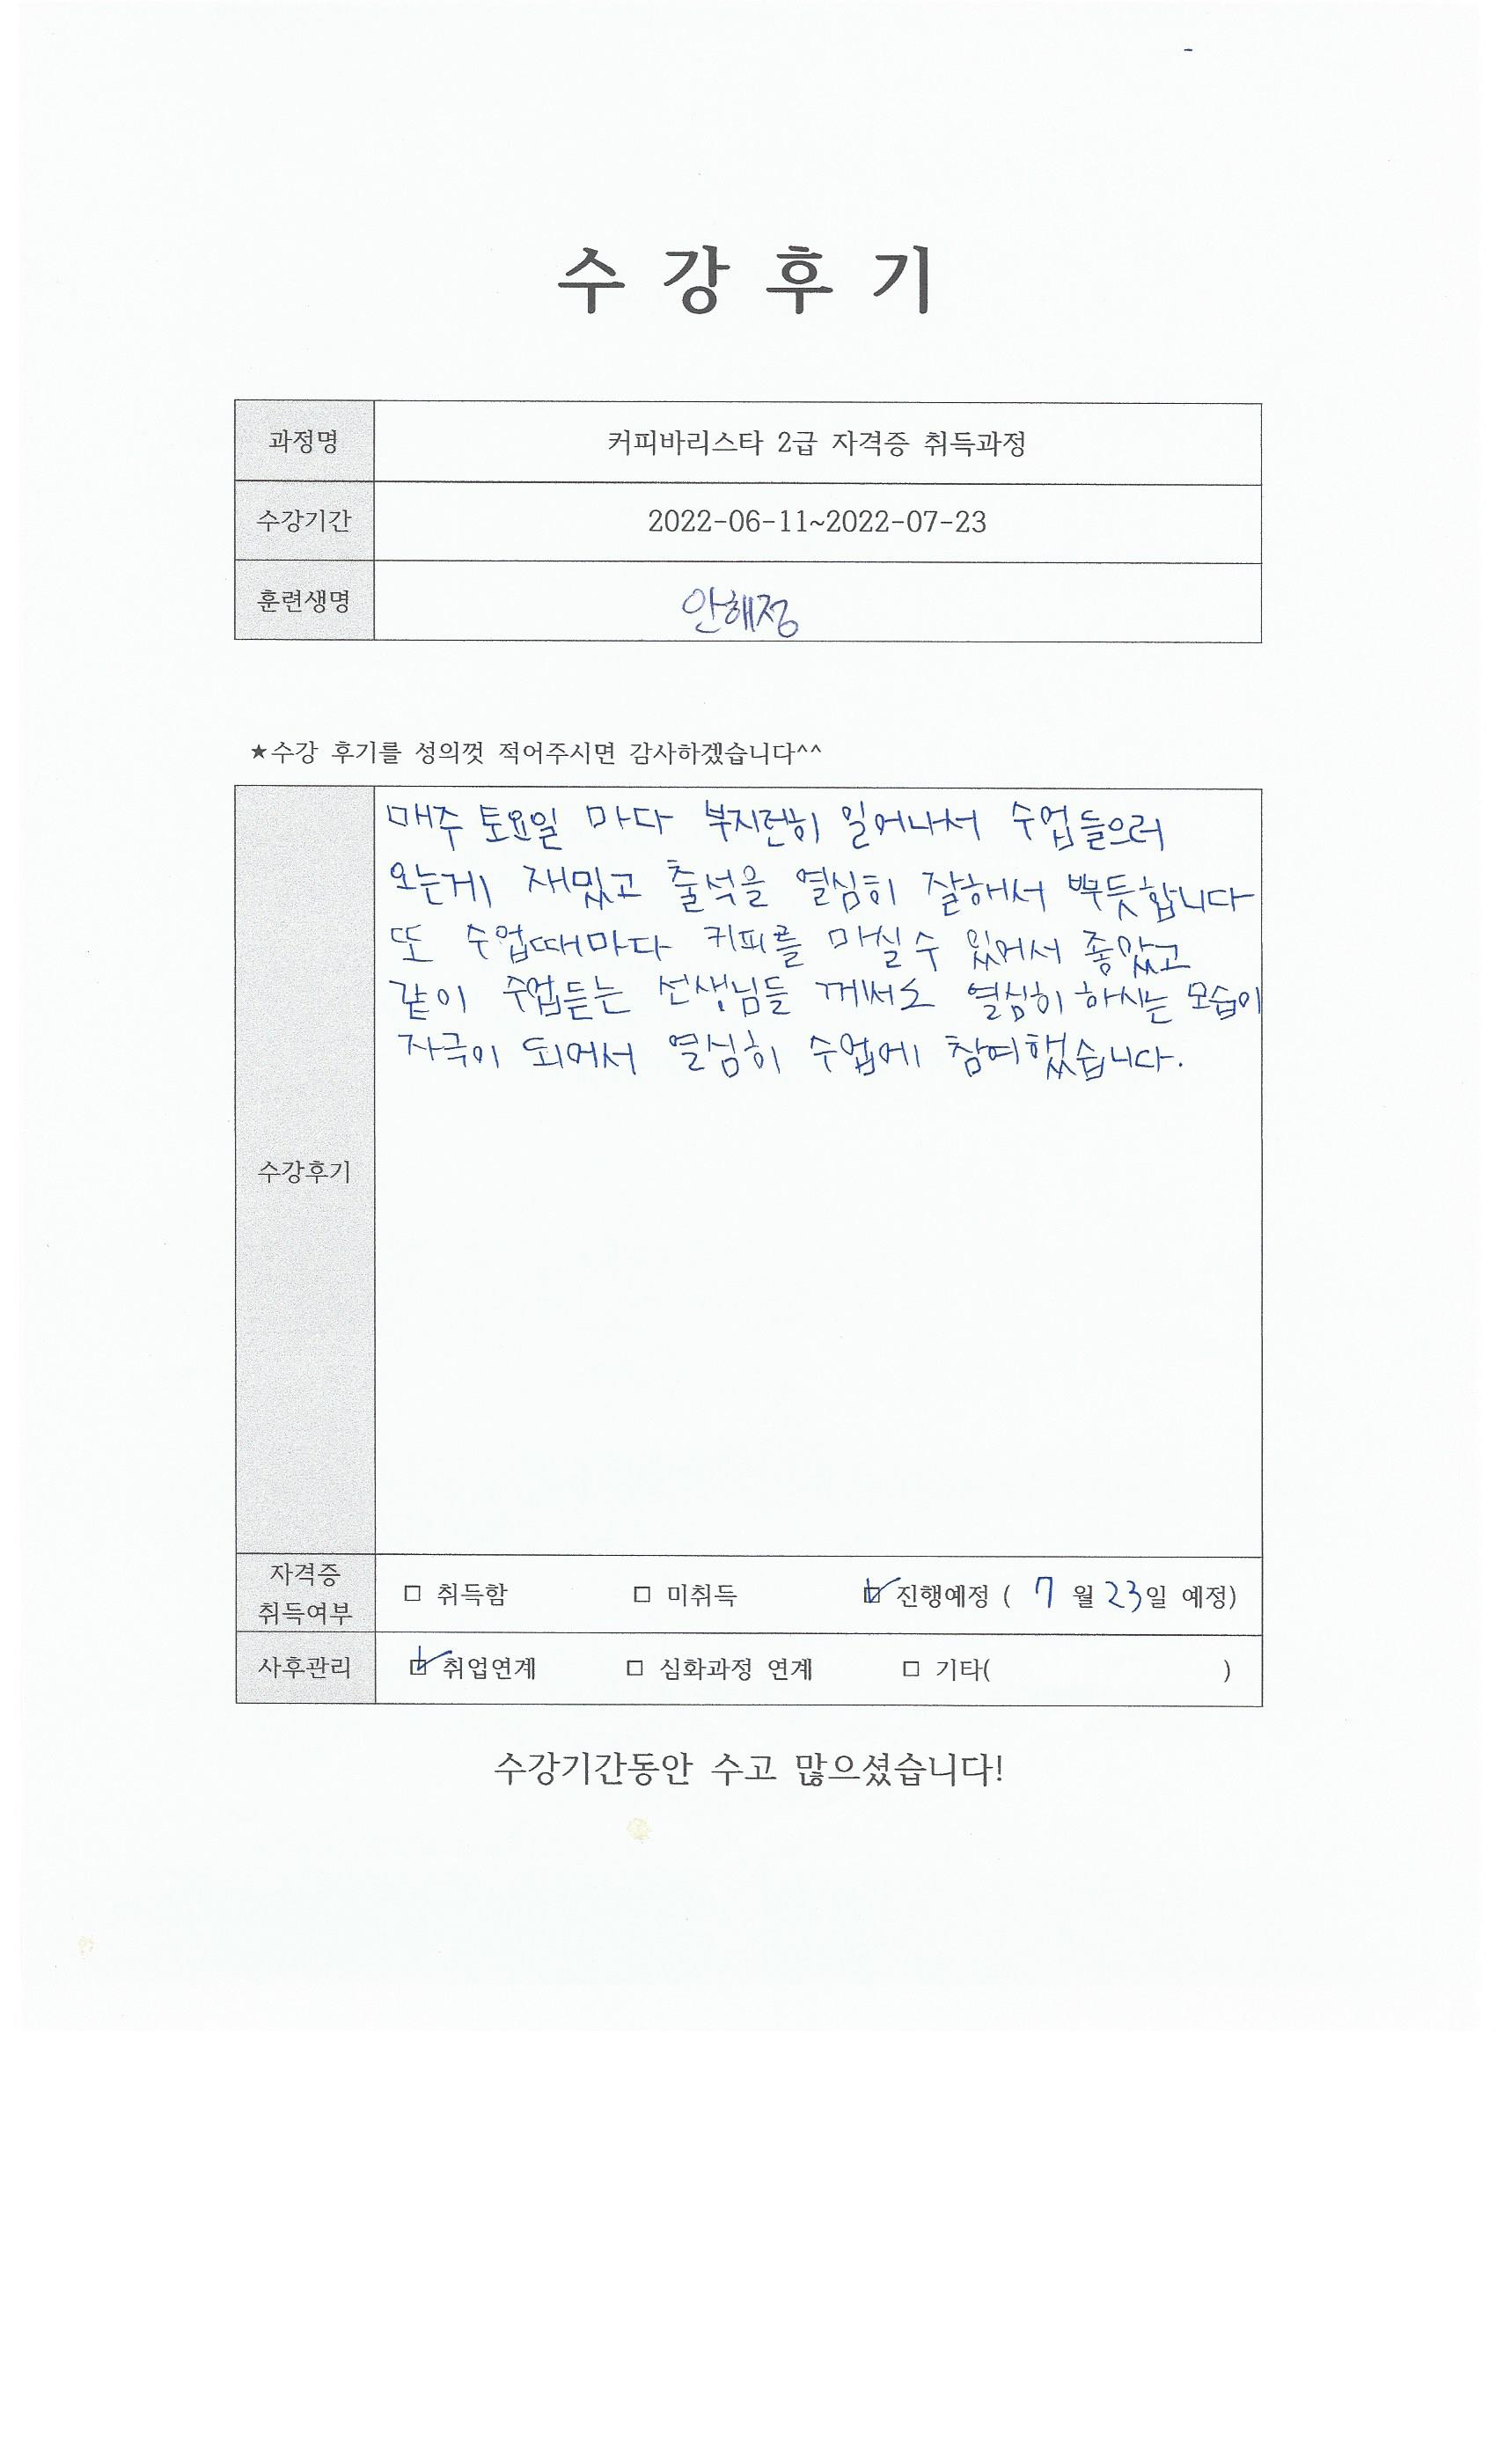 수 강 후 기
과정명 커피바리스타 2급 자격증 취득과정
수강기간 2022-06-11~2022-07-23
훈련생명 안해정
★수강 후기를 성의껏 적어주시면 감사하겠습니다^^
매주 토요일 마다 부지런히 일어나서 수업들으러
오는게 재밌고 출석을 열심히 잘해서 뿌듯합니다
또 수업때마다 커피를 마실수 있어서 좋았고
같이 수업듣는 선생님들 께서도 열심히 하시는 모습이
자극이 되어서 열심히 수업에 참여했습니다.
수강후기
자격증
취득여부 □ 취득함 □ 미취득 ☑ 진행예정 ( 7 월 23일 예정)
사후관리 ☑ 취업연계 □ 심화과정 연계 □ 기타( )
수강기간동안 수고 많으셨습니다!